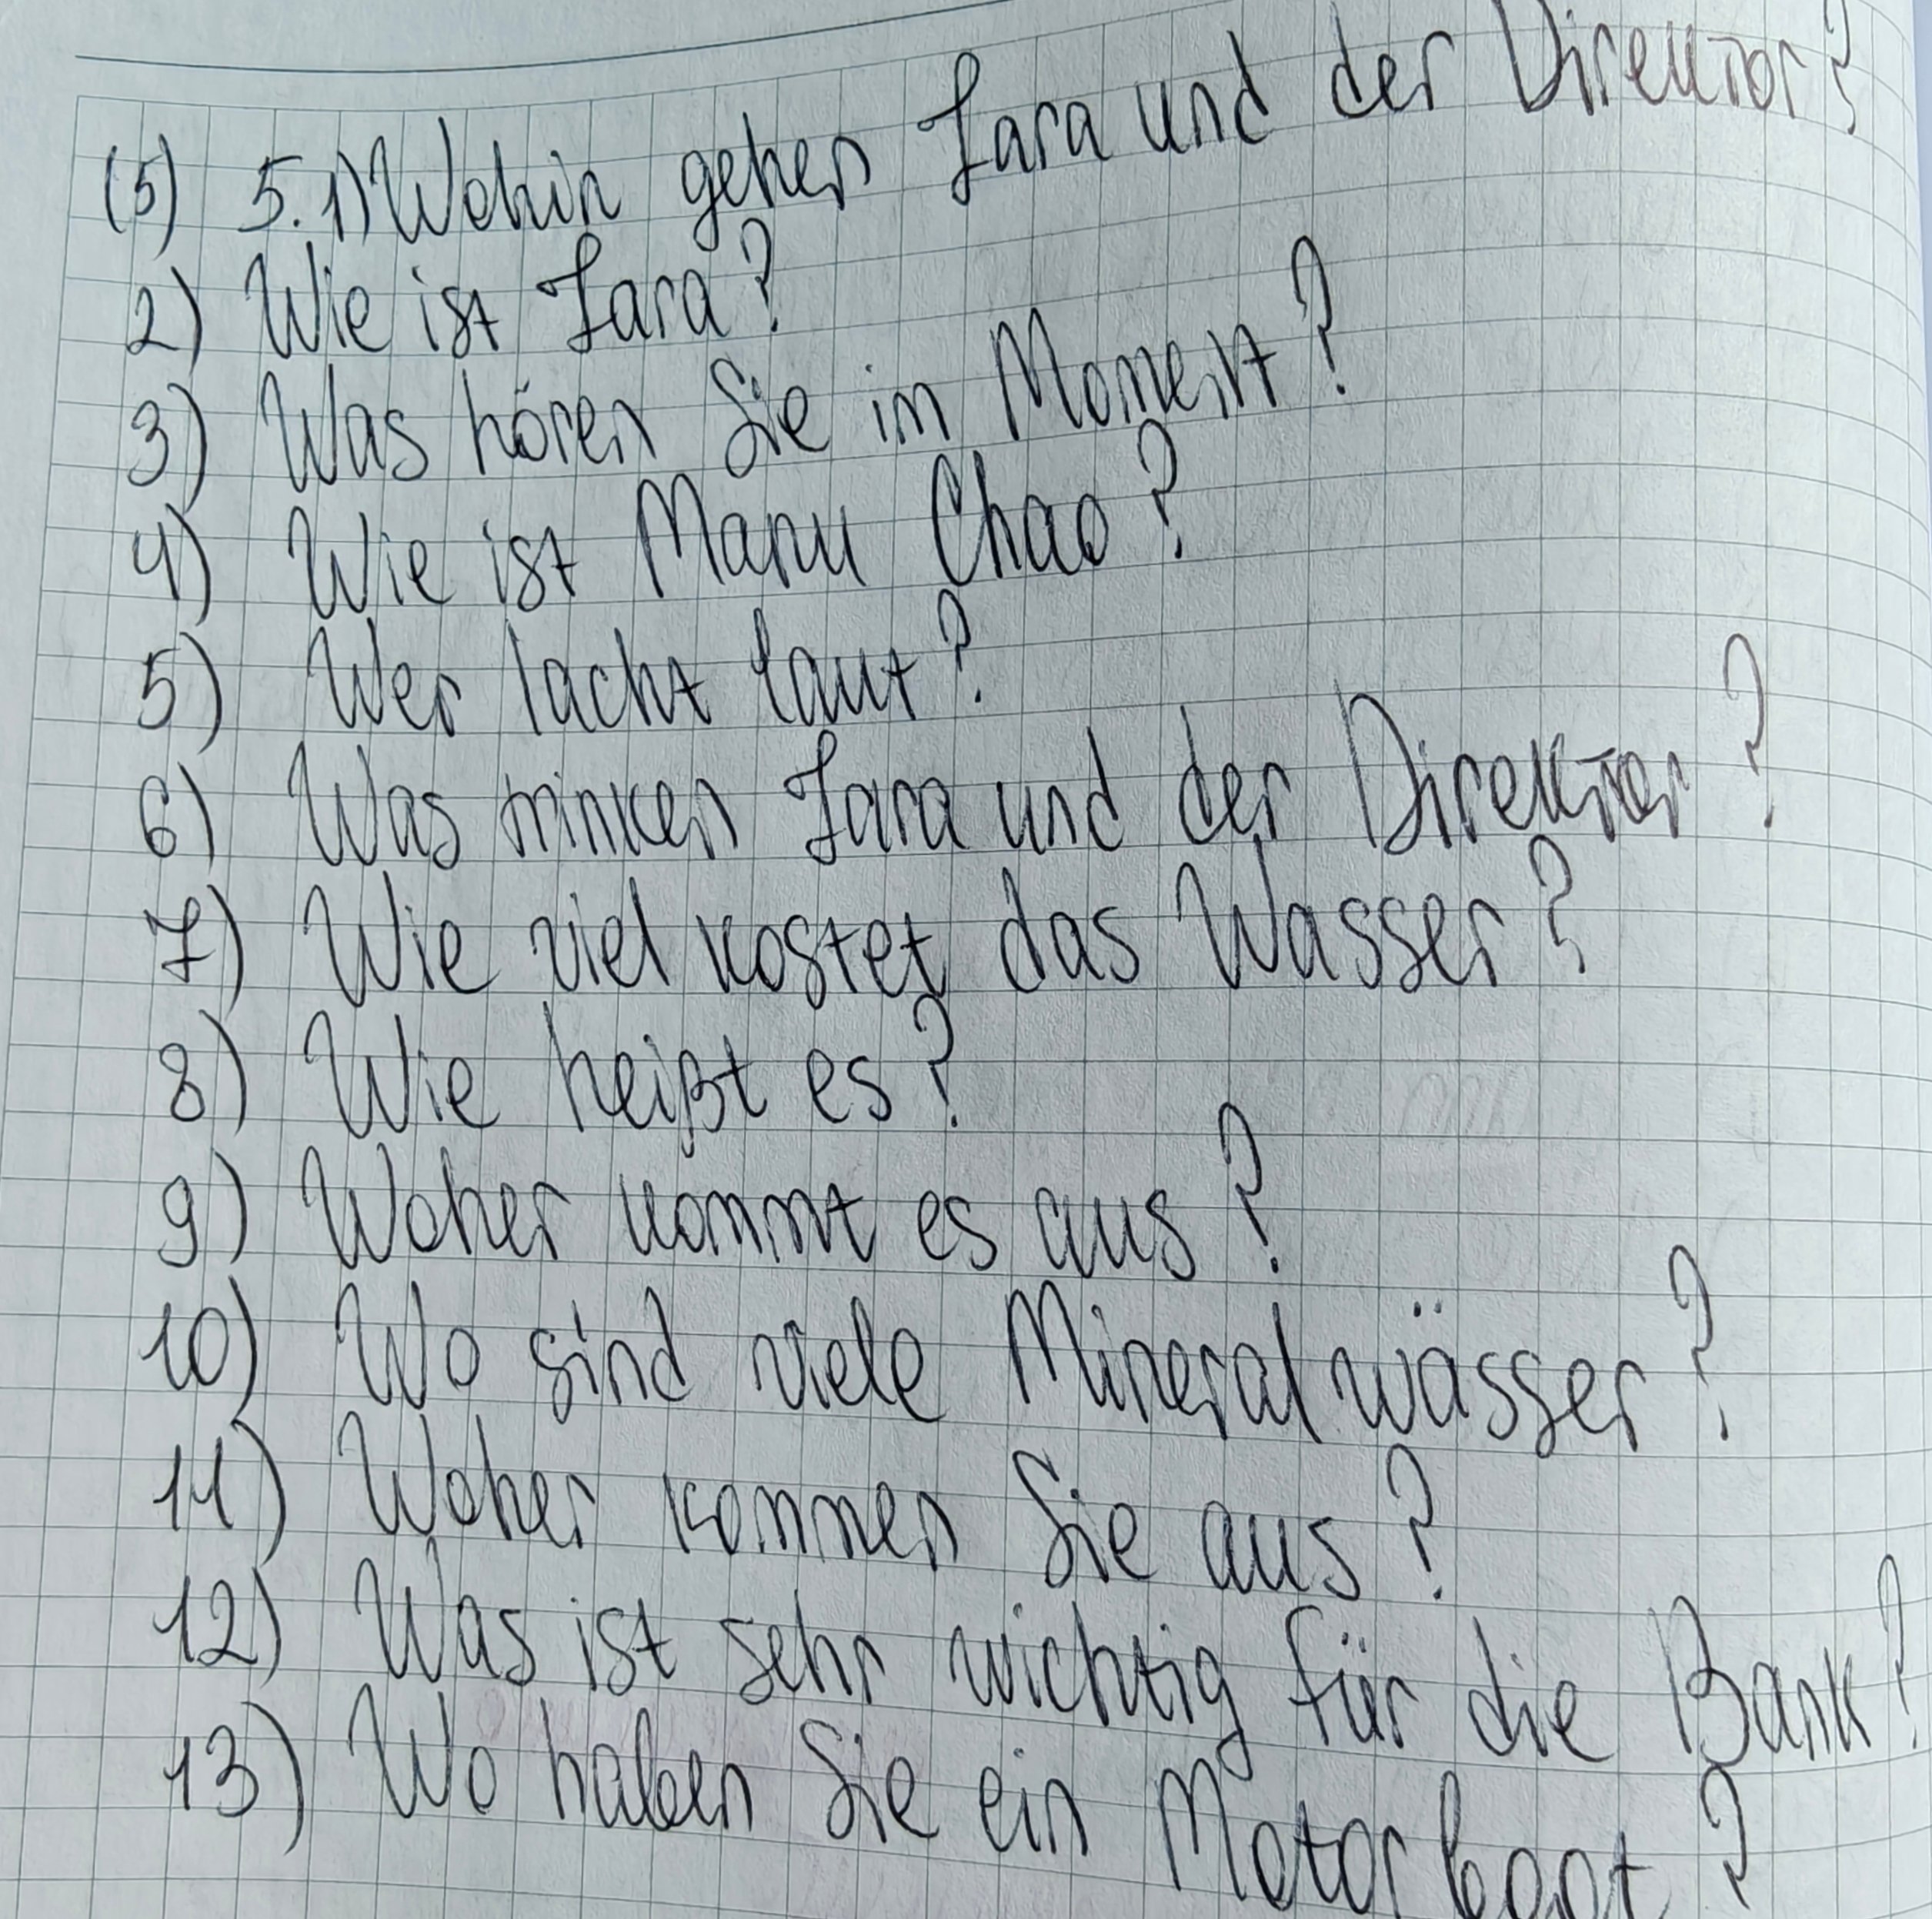 (5) 5. 1) Wohin gehen Jara und der Direktor?
2) Wie ist Jara?
3) Was hören Sie im Moment?
4) Wie ist Manu Chao?
5) Wer lacht laut?
6) Was trinken Jara und der Direktor?
7) Wie viel kostet das Wasser?
8) Wie heißt es?
9) Woher kommt es aus?
10) Wo sind viele Mineralwässer?
11) Woher kommen Sie aus?
12) Was ist sehr wichtig für die Bank?
13) Wo haben Sie ein Motorboot?